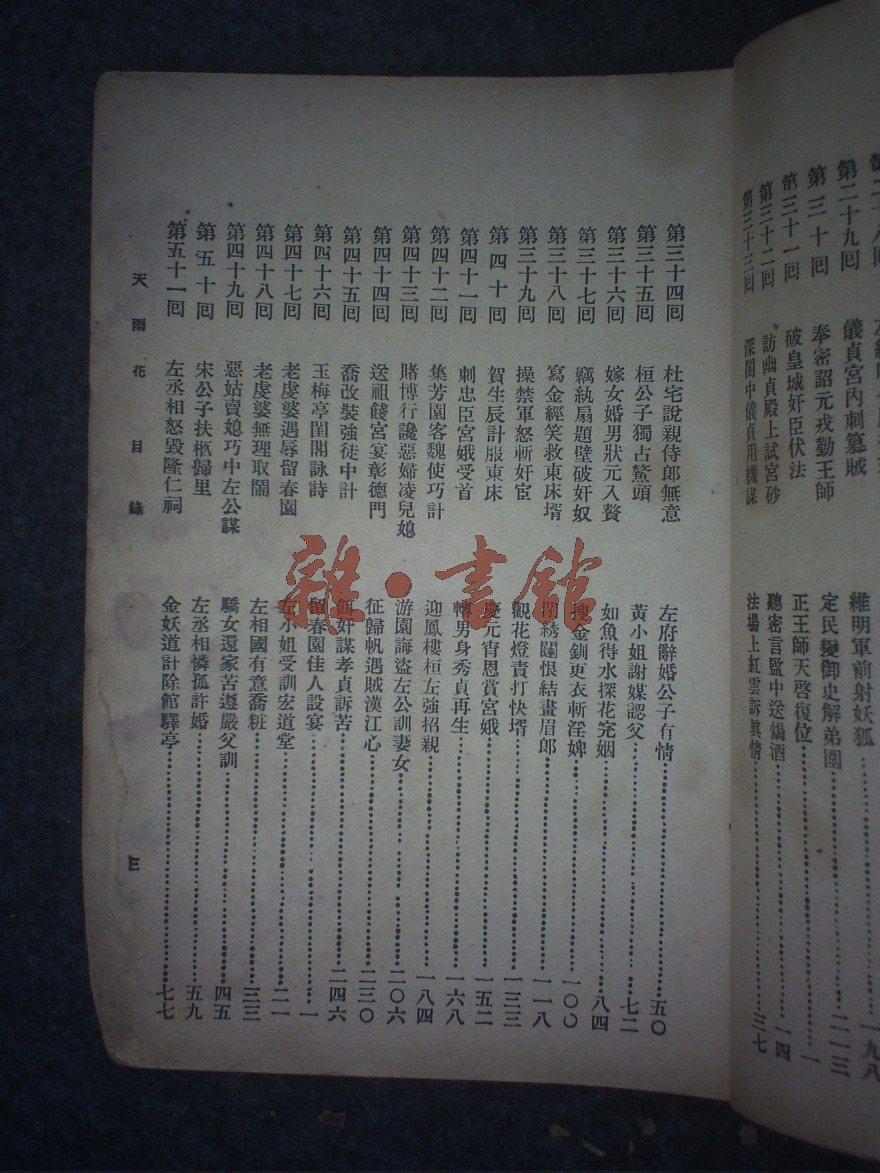 第二十九回 儀貞宮內刺篡賊 維明軍前射妖狐 一九八
第三十回 奉密詔元戎勤王師 定民變御史解弟圍 二一三
第三十一回 破皇城奸臣伏法 正王師天啓復位 一
第三十二回 訪幽貞殿上試宮砂 聽密言監中送煬酒 一四
第三十三回 深閨中儀貞用機謀 法場上紅雲訴眞情 三七
第三十四回 杜宅說親侍郎無意 左府辭婚公子有情 五〇
第三十五回 桓公子獨占鰲頭 黃小姐謝媒認父 七二
第三十六回 嫁女婚男狀元入贅 如魚得水探花完姻 八四
第三十七回 竊紈扇題壁破奸奴 搜金釧更衣斬淫婢 一〇〇
第三十八回 寫金經笑救東床壻 閉綉闥恨結畫眉郎 一一八
第三十九回 操禁軍怒斬奸宦 觀花燈責打快壻 一三三
第四十回 賀生辰計服東床 慶元宵恩賞宮娥 一五二
第四十一回 刺忠臣宮娥受首 轉男身秀貞再生 一六八
第四十二回 集芳園客魏使巧計 迎鳳樓桓左強招親 一八四
第四十三回 賭博行讒惡婦凌兒媳 游園誨盜左公訓妻女 二〇六
第四十四回 送祖餞宮宴彰德門 征歸帆遇賊漢江心 二三〇
第四十五回 喬改裝強徒中計 伺奸謀孝貞訴苦 二四六
第四十六回 玉梅亭閨閣詠詩 留春園佳人設宴 一
第四十七回 老虔婆遇辱留春園 左小姐受訓宏道堂 二一
第四十八回 老虔婆無理取鬧 左相國有意喬粧 三三
第四十九回 惡姑賣媳巧中左公謀 驕女還家苦遭嚴父訓 四五
第五十回 宋公子扶柩歸里 左丞相憐孤許婚 五九
第五十一回 左丞相怒毀隆仁祠 金妖道計除館驛亭 七七
天雨花 目錄 三
雜·書館